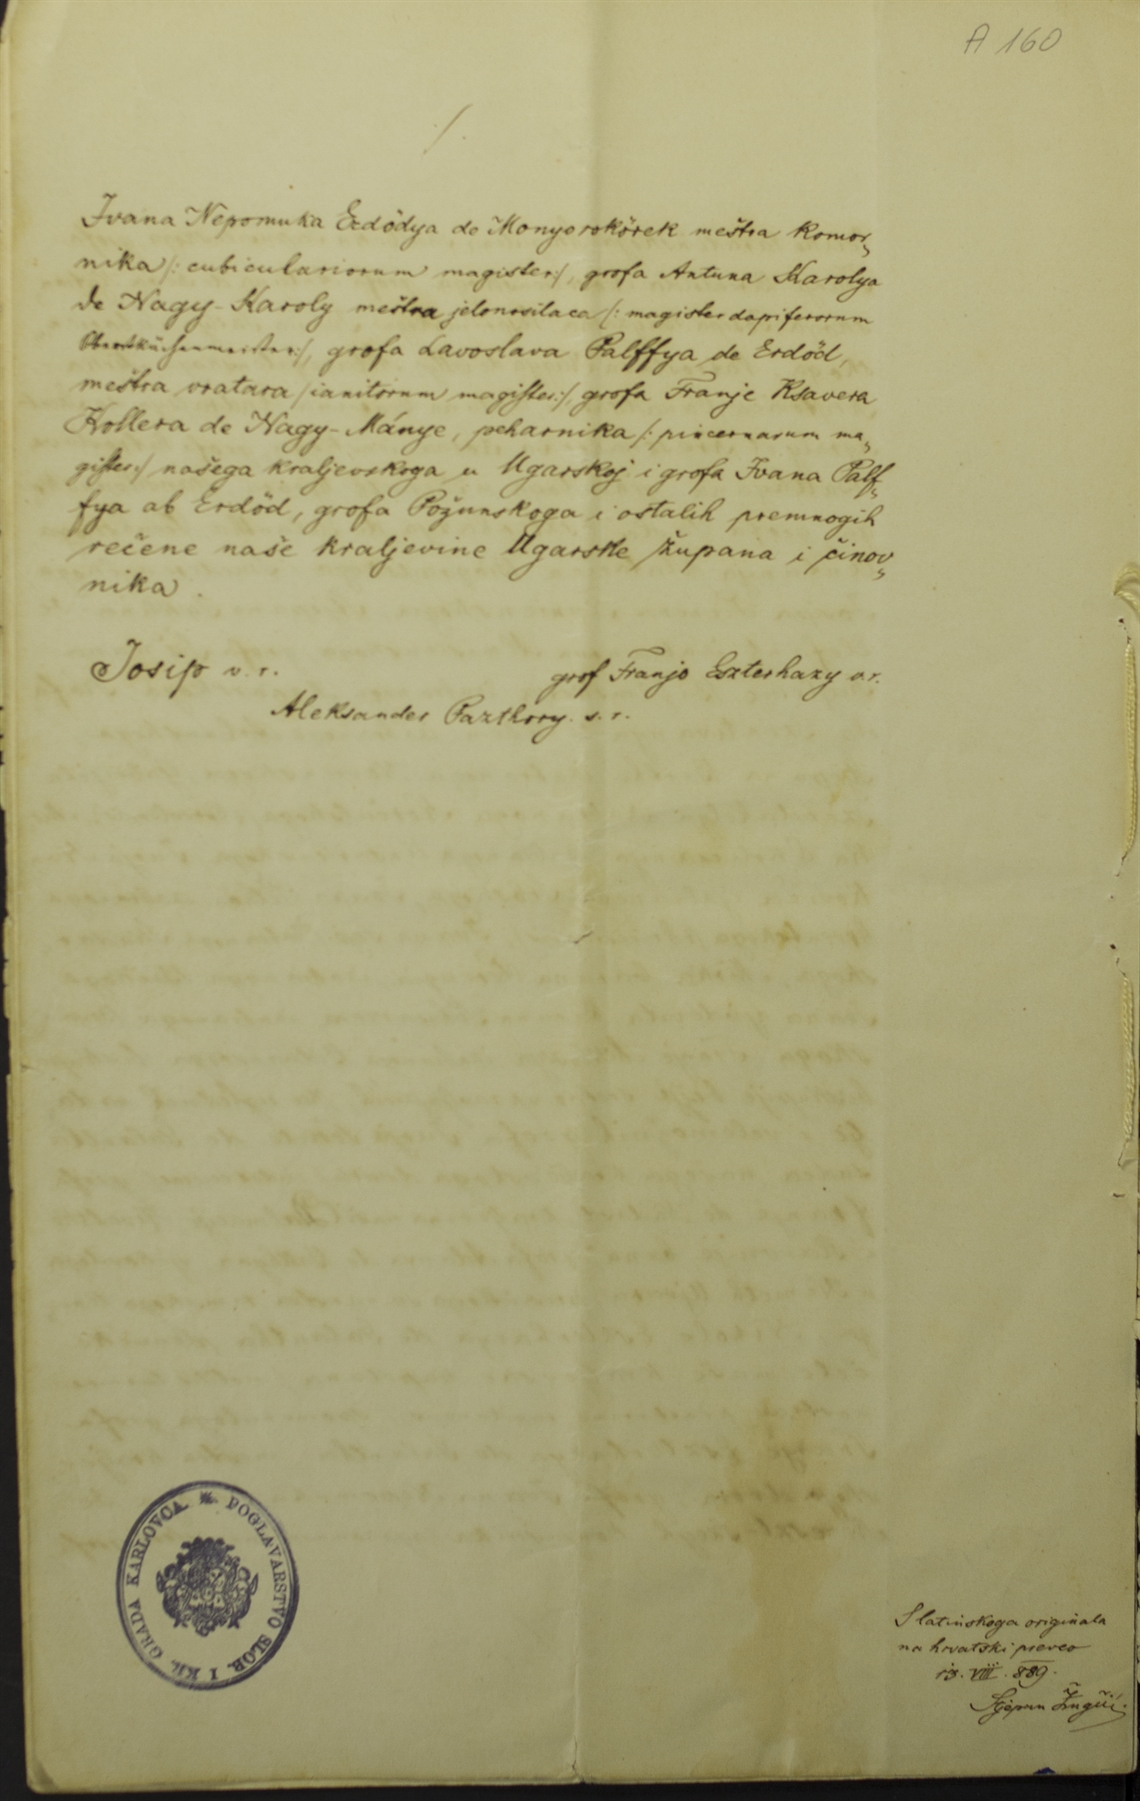 A 160
./.
Ivana Nepomuka Erdödya de Monyorokörek meštra komor„
nika /: cubiculariorum magister:/, grofa Antuna Karolya
de Nagy-Karoly meštra jelonosilaca /: magister dapiferorum
Oberstküchenmeister:/, grofa Lavoslava Palffya de Erdöd,
meštra vratara /ianitorum magister:/, grofa Franje Ksavera
Kollera de Nagy-Mánye, peharnika /: pincernarum ma„
gister:/ našega kraljevskoga u Ugarskoj i grofa Ivana Palf„
fya ab Erdöd, grofa Požunskoga i ostalih premnogih
rečene naše kraljevine Ugarske župana i činov„
nika.
Josip v. r.
grof Franjo Eszterhazy v.r.
Aleksander Pazthory. s. r.
POGLAVARSTVO SLOB. I KR. GRADA KARLOVCA
S latinskoga originala
na hrvatski preveo
VIII. 889.
Stjepan